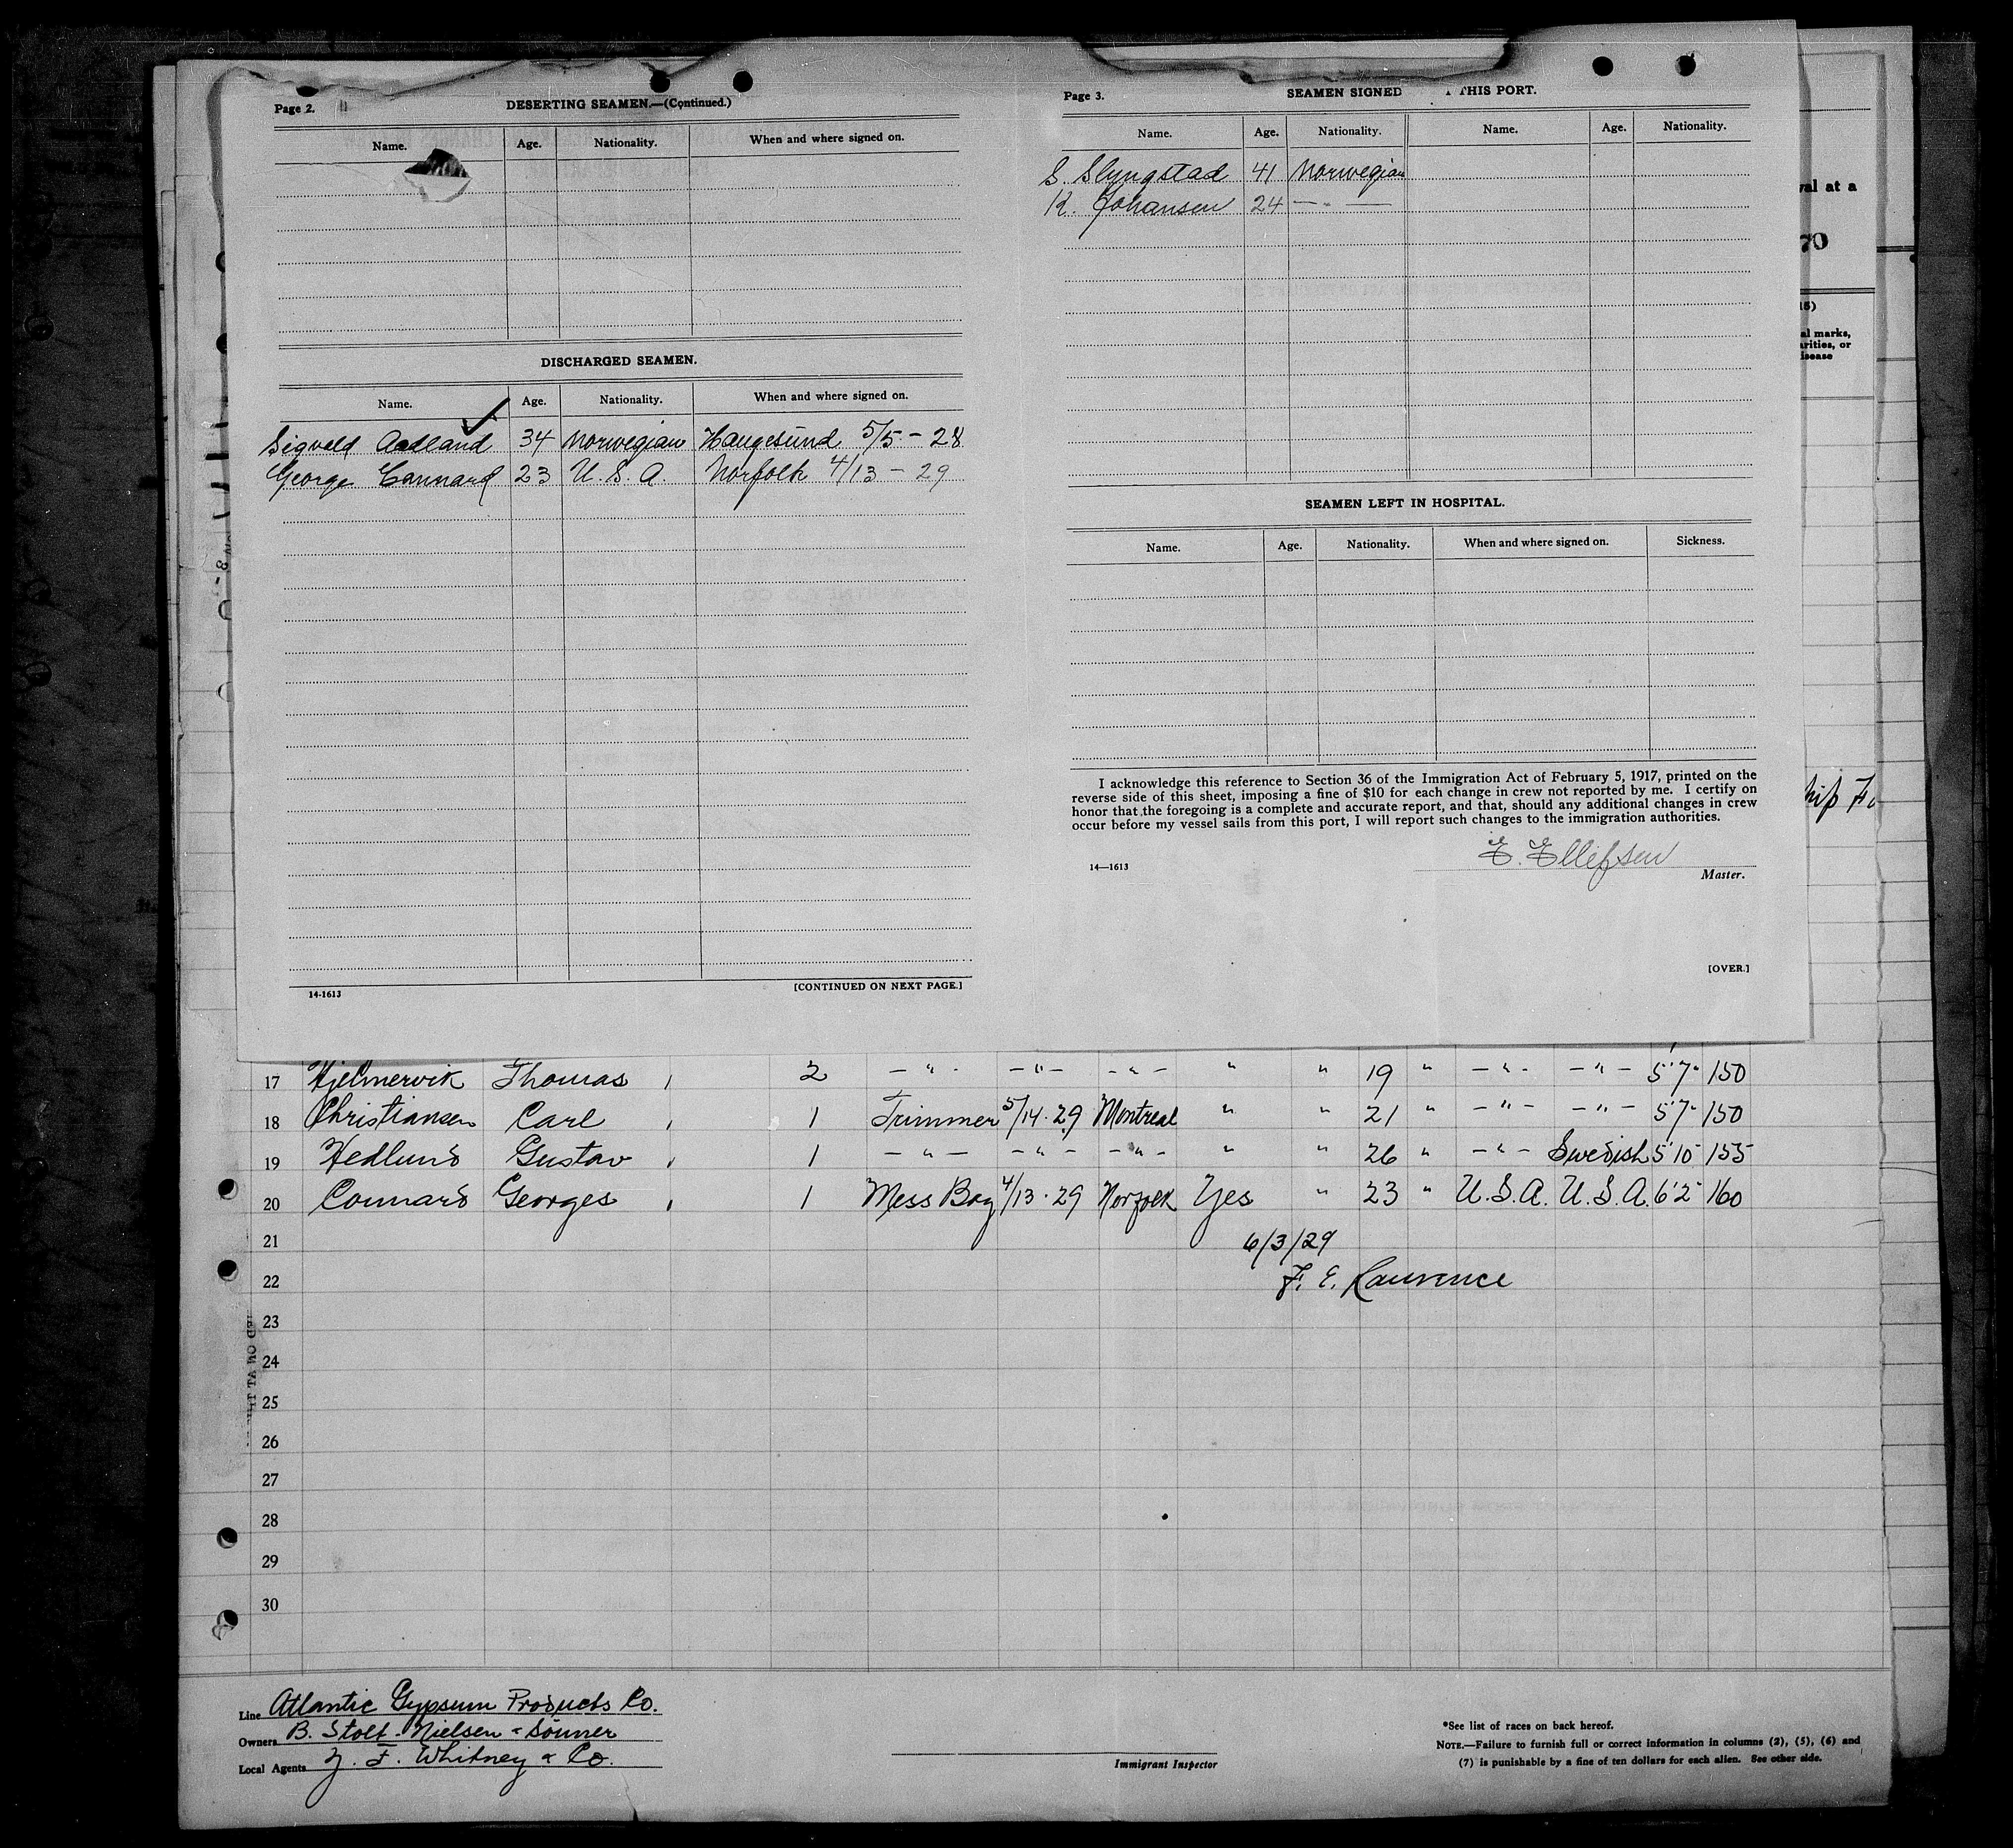 Page 2.
DESERTING SEAMEN.—(Continued.)
Name. Age. Nationality. When and where signed on.
DISCHARGED SEAMEN.
Name. Age. Nationality. When and where signed on.
Sigveld Aadland 34 Norwegian Haugesund 5/5 - 28
George Connard 23 U. S. A. Norfolk 4/13 - 29
14-1613
[CONTINUED ON NEXT PAGE.]
Page 3.
SEAMEN SIGNED THIS PORT.
Name. Age. Nationality. Name. Age. Nationality.
S. Slyngstad 41 Norwegian
K. Johansen 24 — " —
SEAMEN LEFT IN HOSPITAL.
Name. Age. Nationality. When and where signed on. Sickness.
I acknowledge this reference to Section 36 of the Immigration Act of February 5, 1917, printed on the
reverse side of this sheet, imposing a fine of $10 for each change in crew not reported by me. I certify on
honor that the foregoing is a complete and accurate report, and that, should any additional changes in crew
occur before my vessel sails from this port, I will report such changes to the immigration authorities.
E. Ellefsen
14—1613
Master.
[OVER.]
val at a
70
al marks,
arities, or
isease
hip
17 Hjelmervik Thomas 2 — " - — " — - " - " " 19 " — " - — " — 5'7" 150
18 Christiansen Carl 1 Trimmer 5/14 - 29 Montreal " " 21 " — " — — " — 5'7" 150
19 Hedlund Gustav 1 — " — — " — — " — " " 26 " — " — Swedish 5'10" 155
20 Connard Georges 1 Mess Boy 4/13 - 29 Norfolk Yes " 23 " U. S. A. U. S. A. 6'2" 160
21
6/3/29
22
F. E. Laurence
23
24
25
26
27
28
29
30
Line Atlantic Gypsum Products Co.
Owners B. Stolt-Nielsen & Sønner
Local Agents J. F. Whitney & Co.
Immigrant Inspector
*See list of races on back hereof.
NOTE.—Failure to furnish full or correct information in columns (2), (5), (6) and
(7) is punishable by a fine of ten dollars for each alien. See other side.